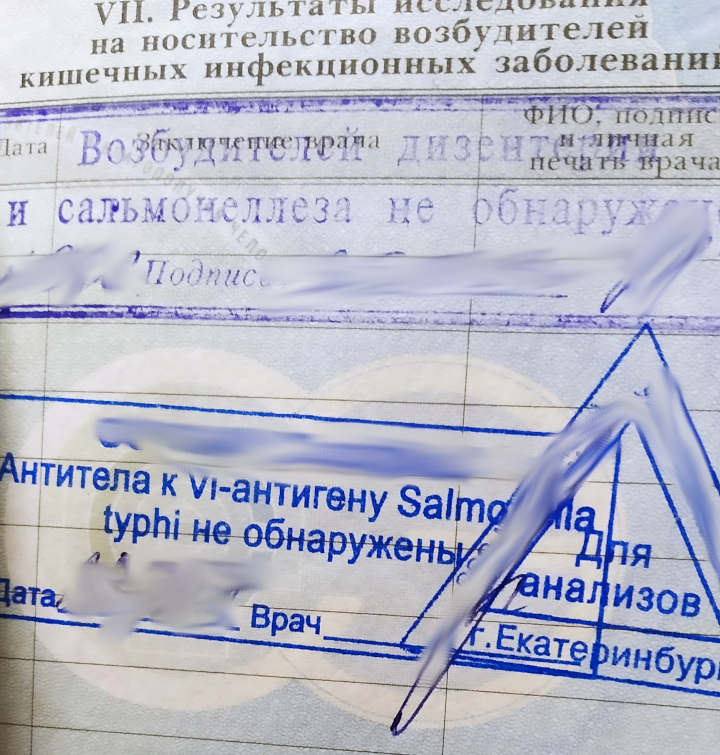 VII. Результаты исследования
на носительство возбудителей
кишечных инфекционных заболевани
Дата
Заключение врача
ФИО, подпис
и личная
печать врача
Возбудителей дизентерии
и сальмонеллеза не обнаружен
Подпис
Антитела к Vi-антигену Salmo lla
typhi не обнаружены
Дата
Врач
Для
анализов
г.Екатеринбург